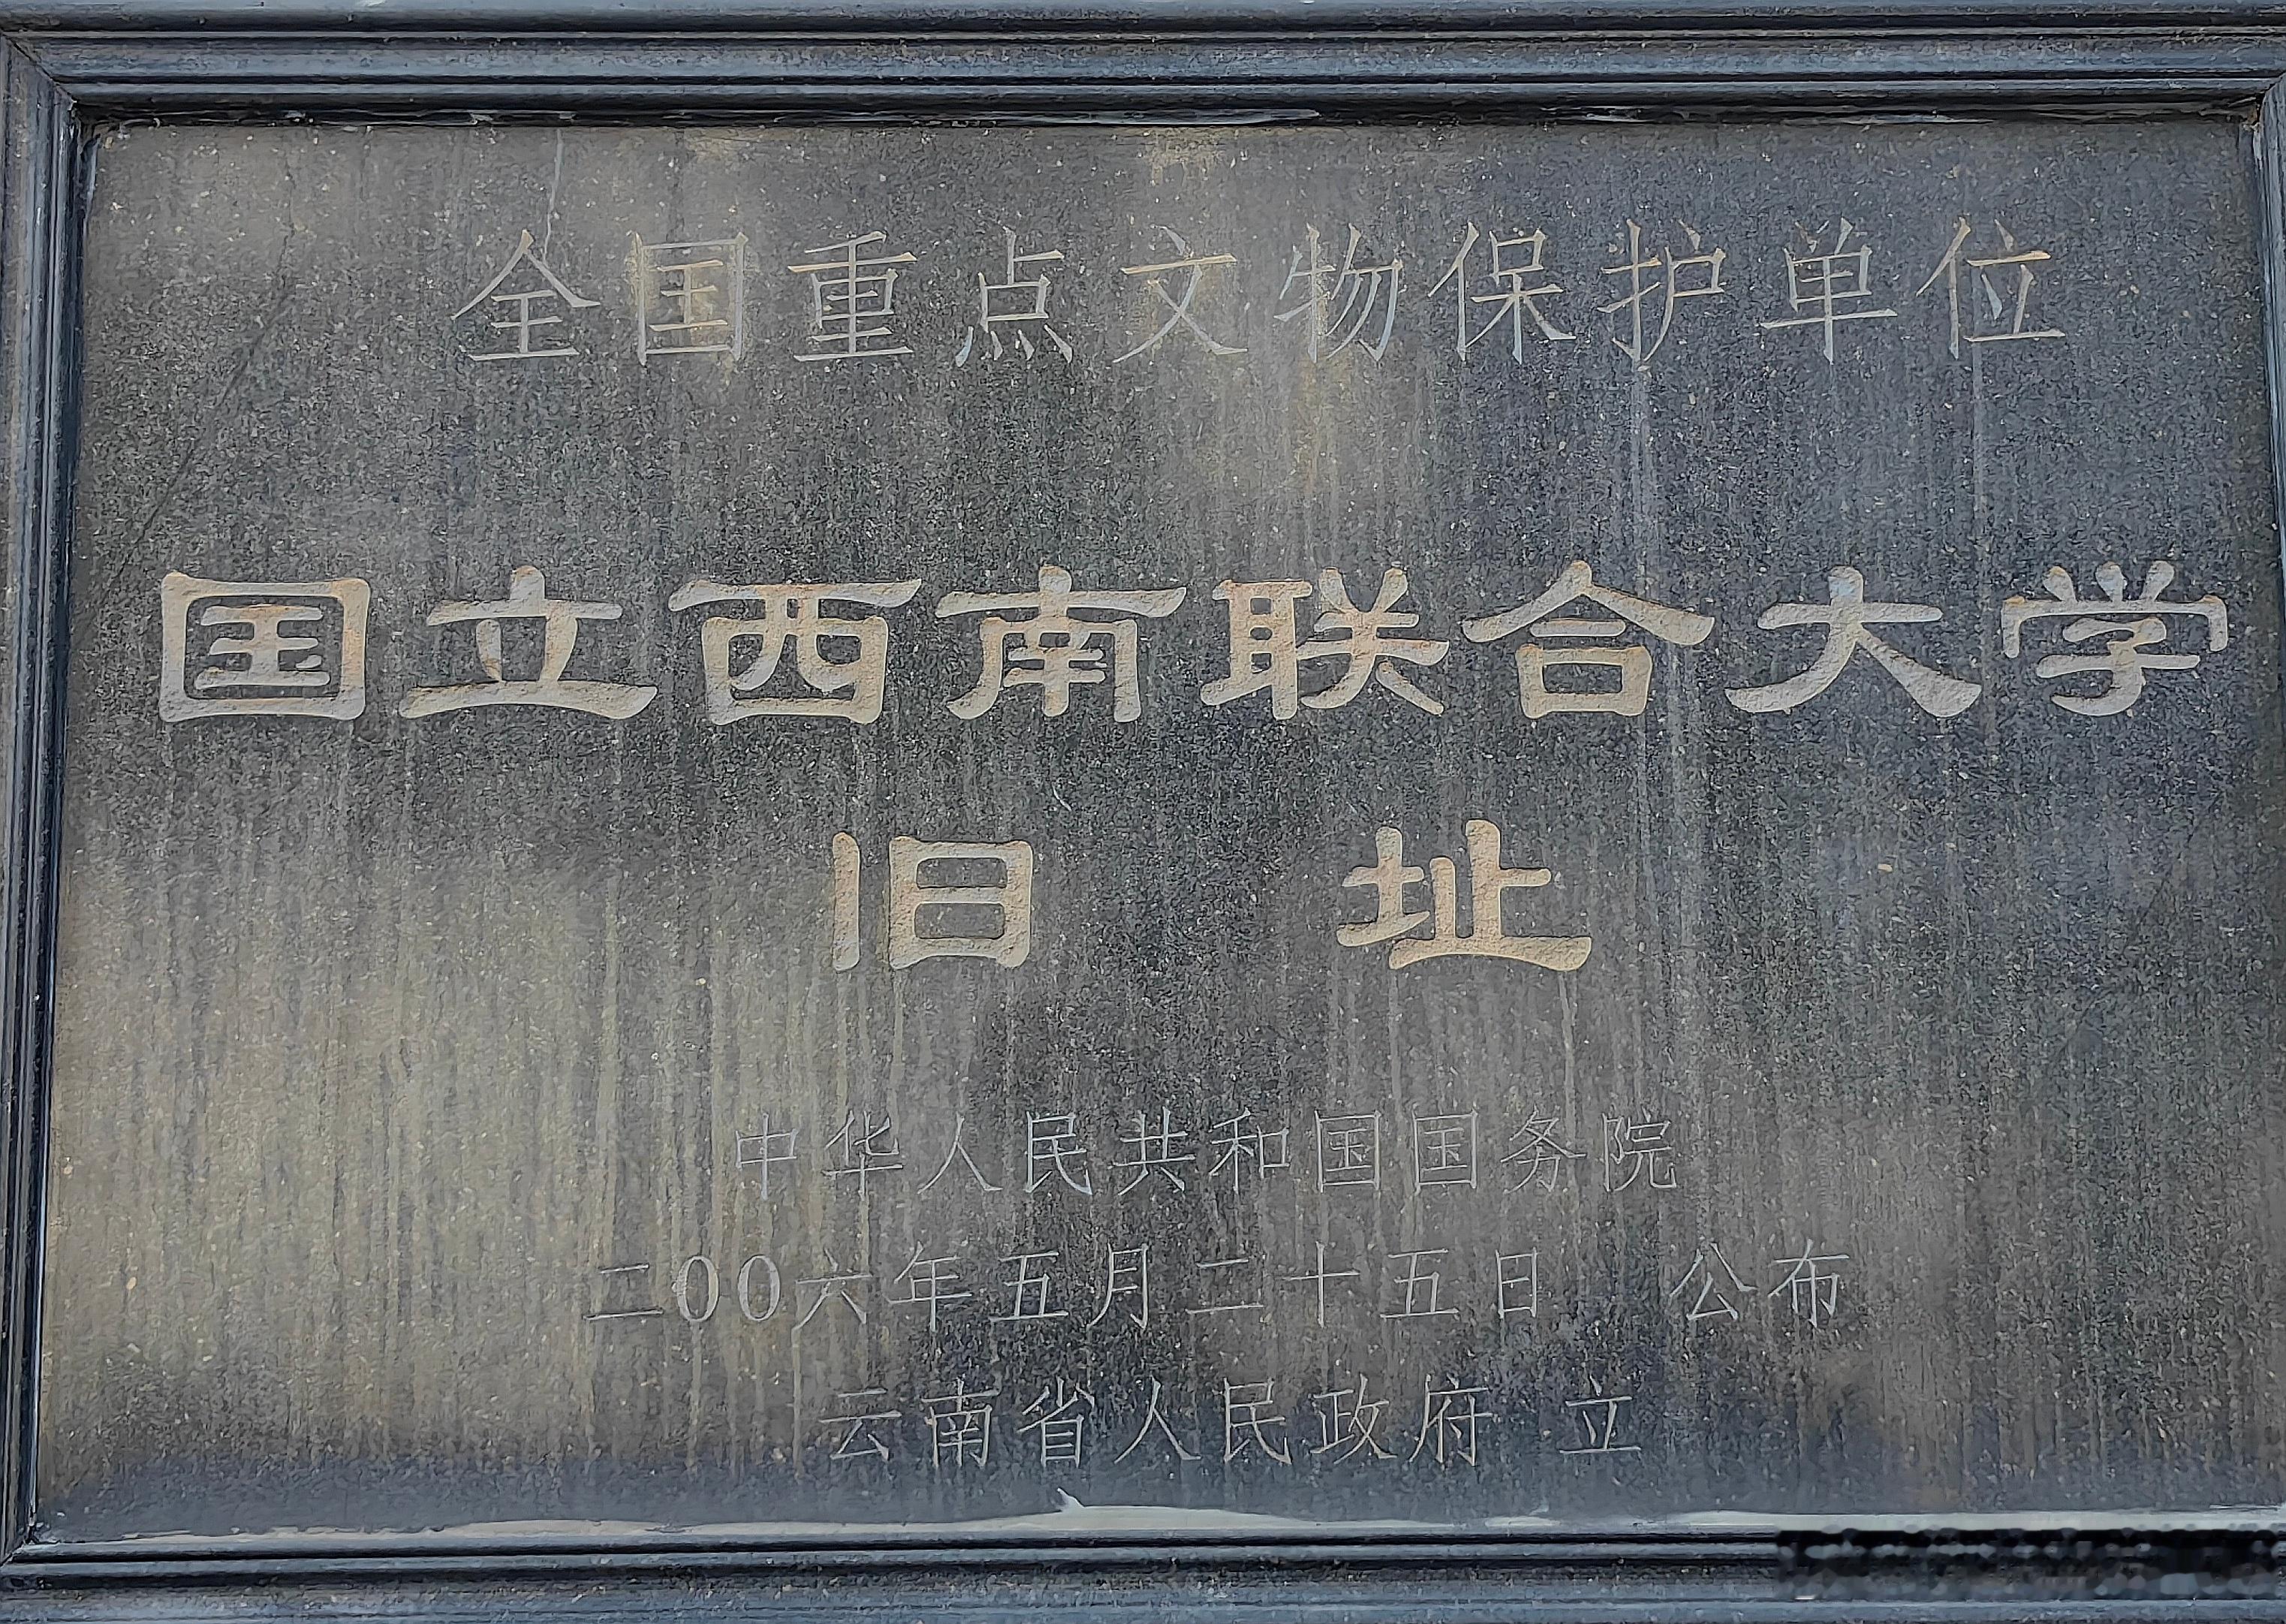 全国重点文物保护单位
国立西南联合大学
旧址
中华人民共和国国务院
二00六年五月二十五日 公布
云南省人民政府 立